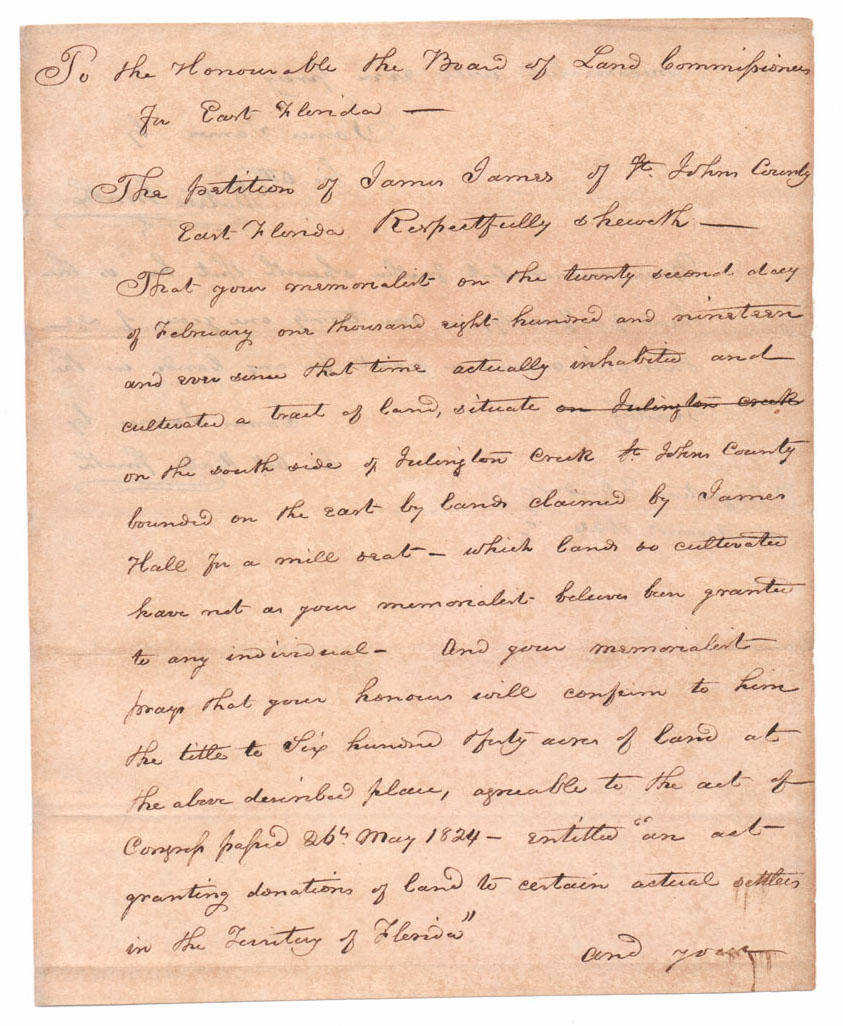 To the Honourable the Board of Land Commissioners
for East Florida —
The petition of James James of St. Johns County
East Florida Respectfully sheweth —
That your memorialist on the twenty second day
of February one thousand eight hundred and nineteen
and ever since that time actually inhabited and
cultivated a tract of land, situate on Julington creek
on the south side of Julington Creek St. Johns County
bounded on the east by lands claimed by James
Hall for a mill seat — which lands so cultivated
have not as your memorialist believes been granted
to any individual — And your memorialist
prays that your honours will confirm to him
the title to Six hundred & forty acres of land at
the above described place, agreable to the act of
Congress passed 26th May 1824 — entitled "an act
granting donations of land to certain actual settlers
in the Territory of Florida"
and your